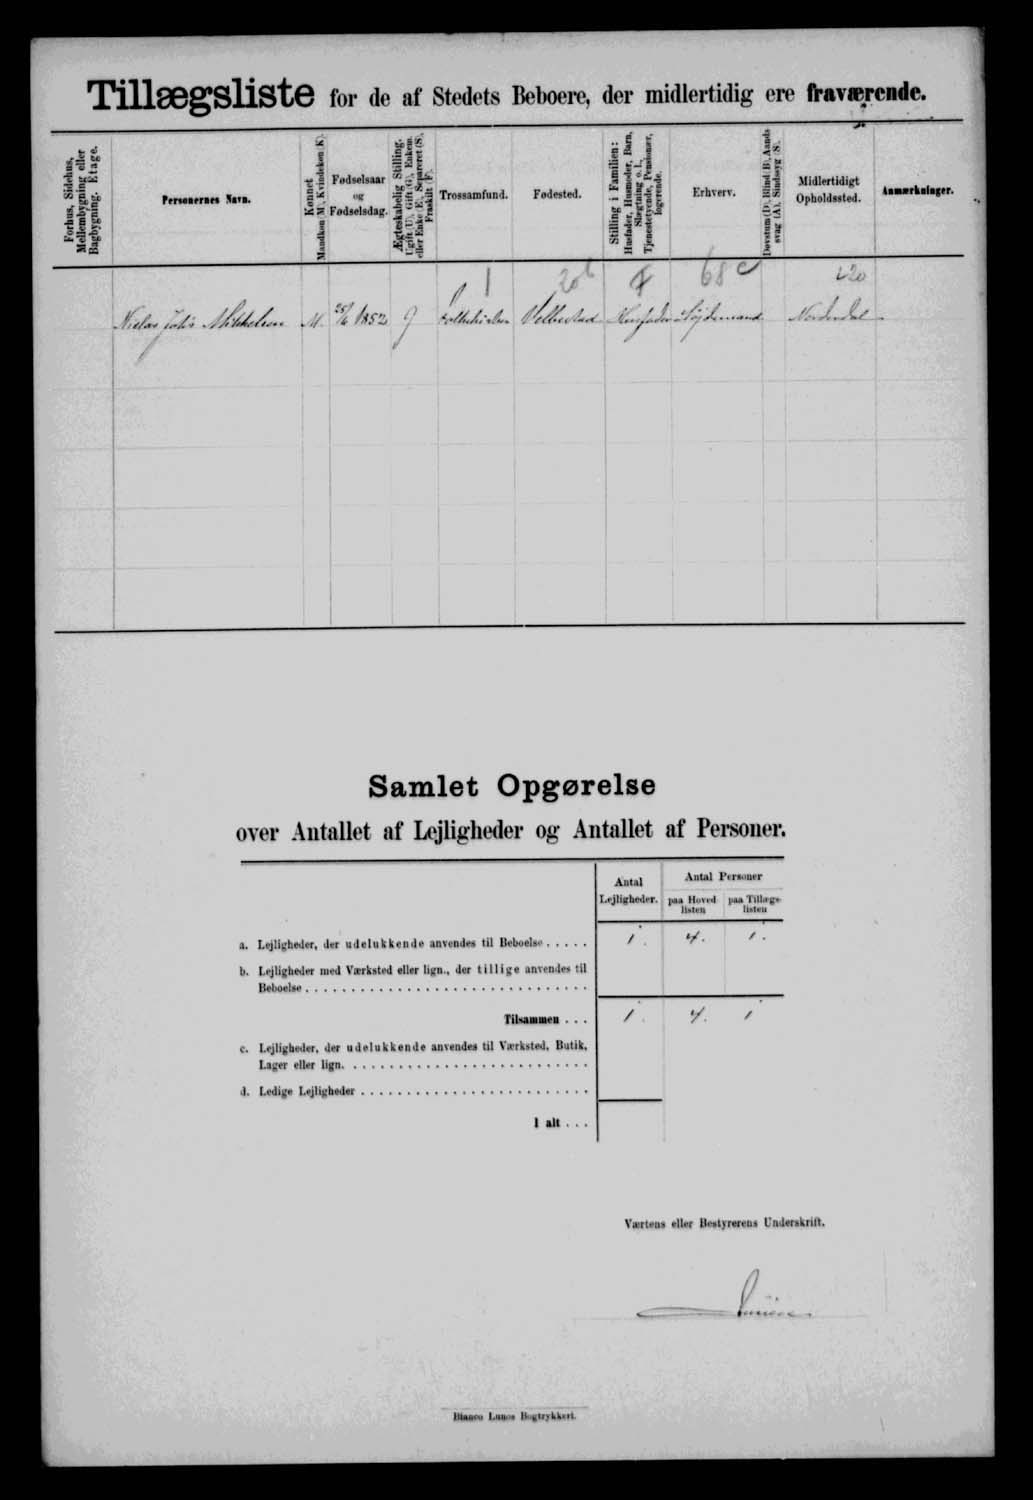 Tillægsliste for de af Stedets Beboere, der midlertidig ere fraværende.
Forhus, Sidehus, Mellembygning eller Bagbygning. Etage.
Personernes Navn.
Kønnet Mandkøn (M), Kvindekøn (K).
Fødselsaar og Fødselsdag.
Ægteskabelig Stilling. Ugift (U), Gift (G), Enkem. eller Enke (E), Separeret (S), Fraskilt (F).
Trossamfund.
Fødested.
Stilling i Familien: Husfader, Husmoder, Barn, Slægtning o. l., Tjenestetyende, Pensionær, logerende.
Erhverv.
Døvstum (D), Blind (B), Aandssvag (A), Sindssyg (S).
Midlertidigt Opholdssted.
Anmærkninger.
1 20 b 68 c 420
Niels Mikkelsen M. 25/6 1852 G Husfader
Samlet Opgørelse
over Antallet af Lejligheder og Antallet af Personer.
Antal Lejligheder.
Antal Personer
paa Hovedlisten
paa Tillægslisten
a. Lejligheder, der udelukkende anvendes til Beboelse ..... 1. 4. 1.
b. Lejligheder med Værksted eller lign., der tillige anvendes til
Beboelse
Tilsammen ... 1. 4. 1
c. Lejligheder, der udelukkende anvendes til Værksted, Butik,
Lager eller lign.
d. Ledige Lejligheder
I alt ...
Værtens eller Bestyrerens Underskrift.
Bianco Lunos Bogtrykkeri.